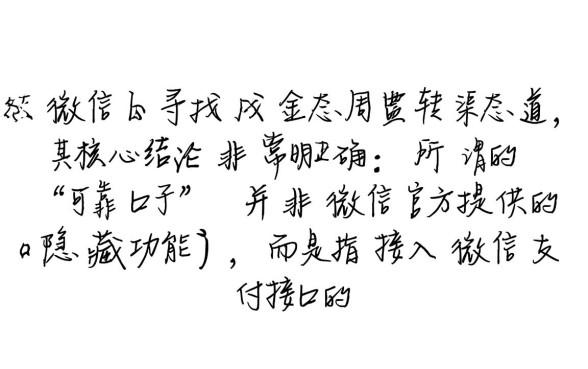 微信 寻找 金态周 转渠态道，
其核心结论非常明确：所谓的
“可靠口子” 并非微信官方提供的
隐藏功能，而是指接入微信支
付接口的